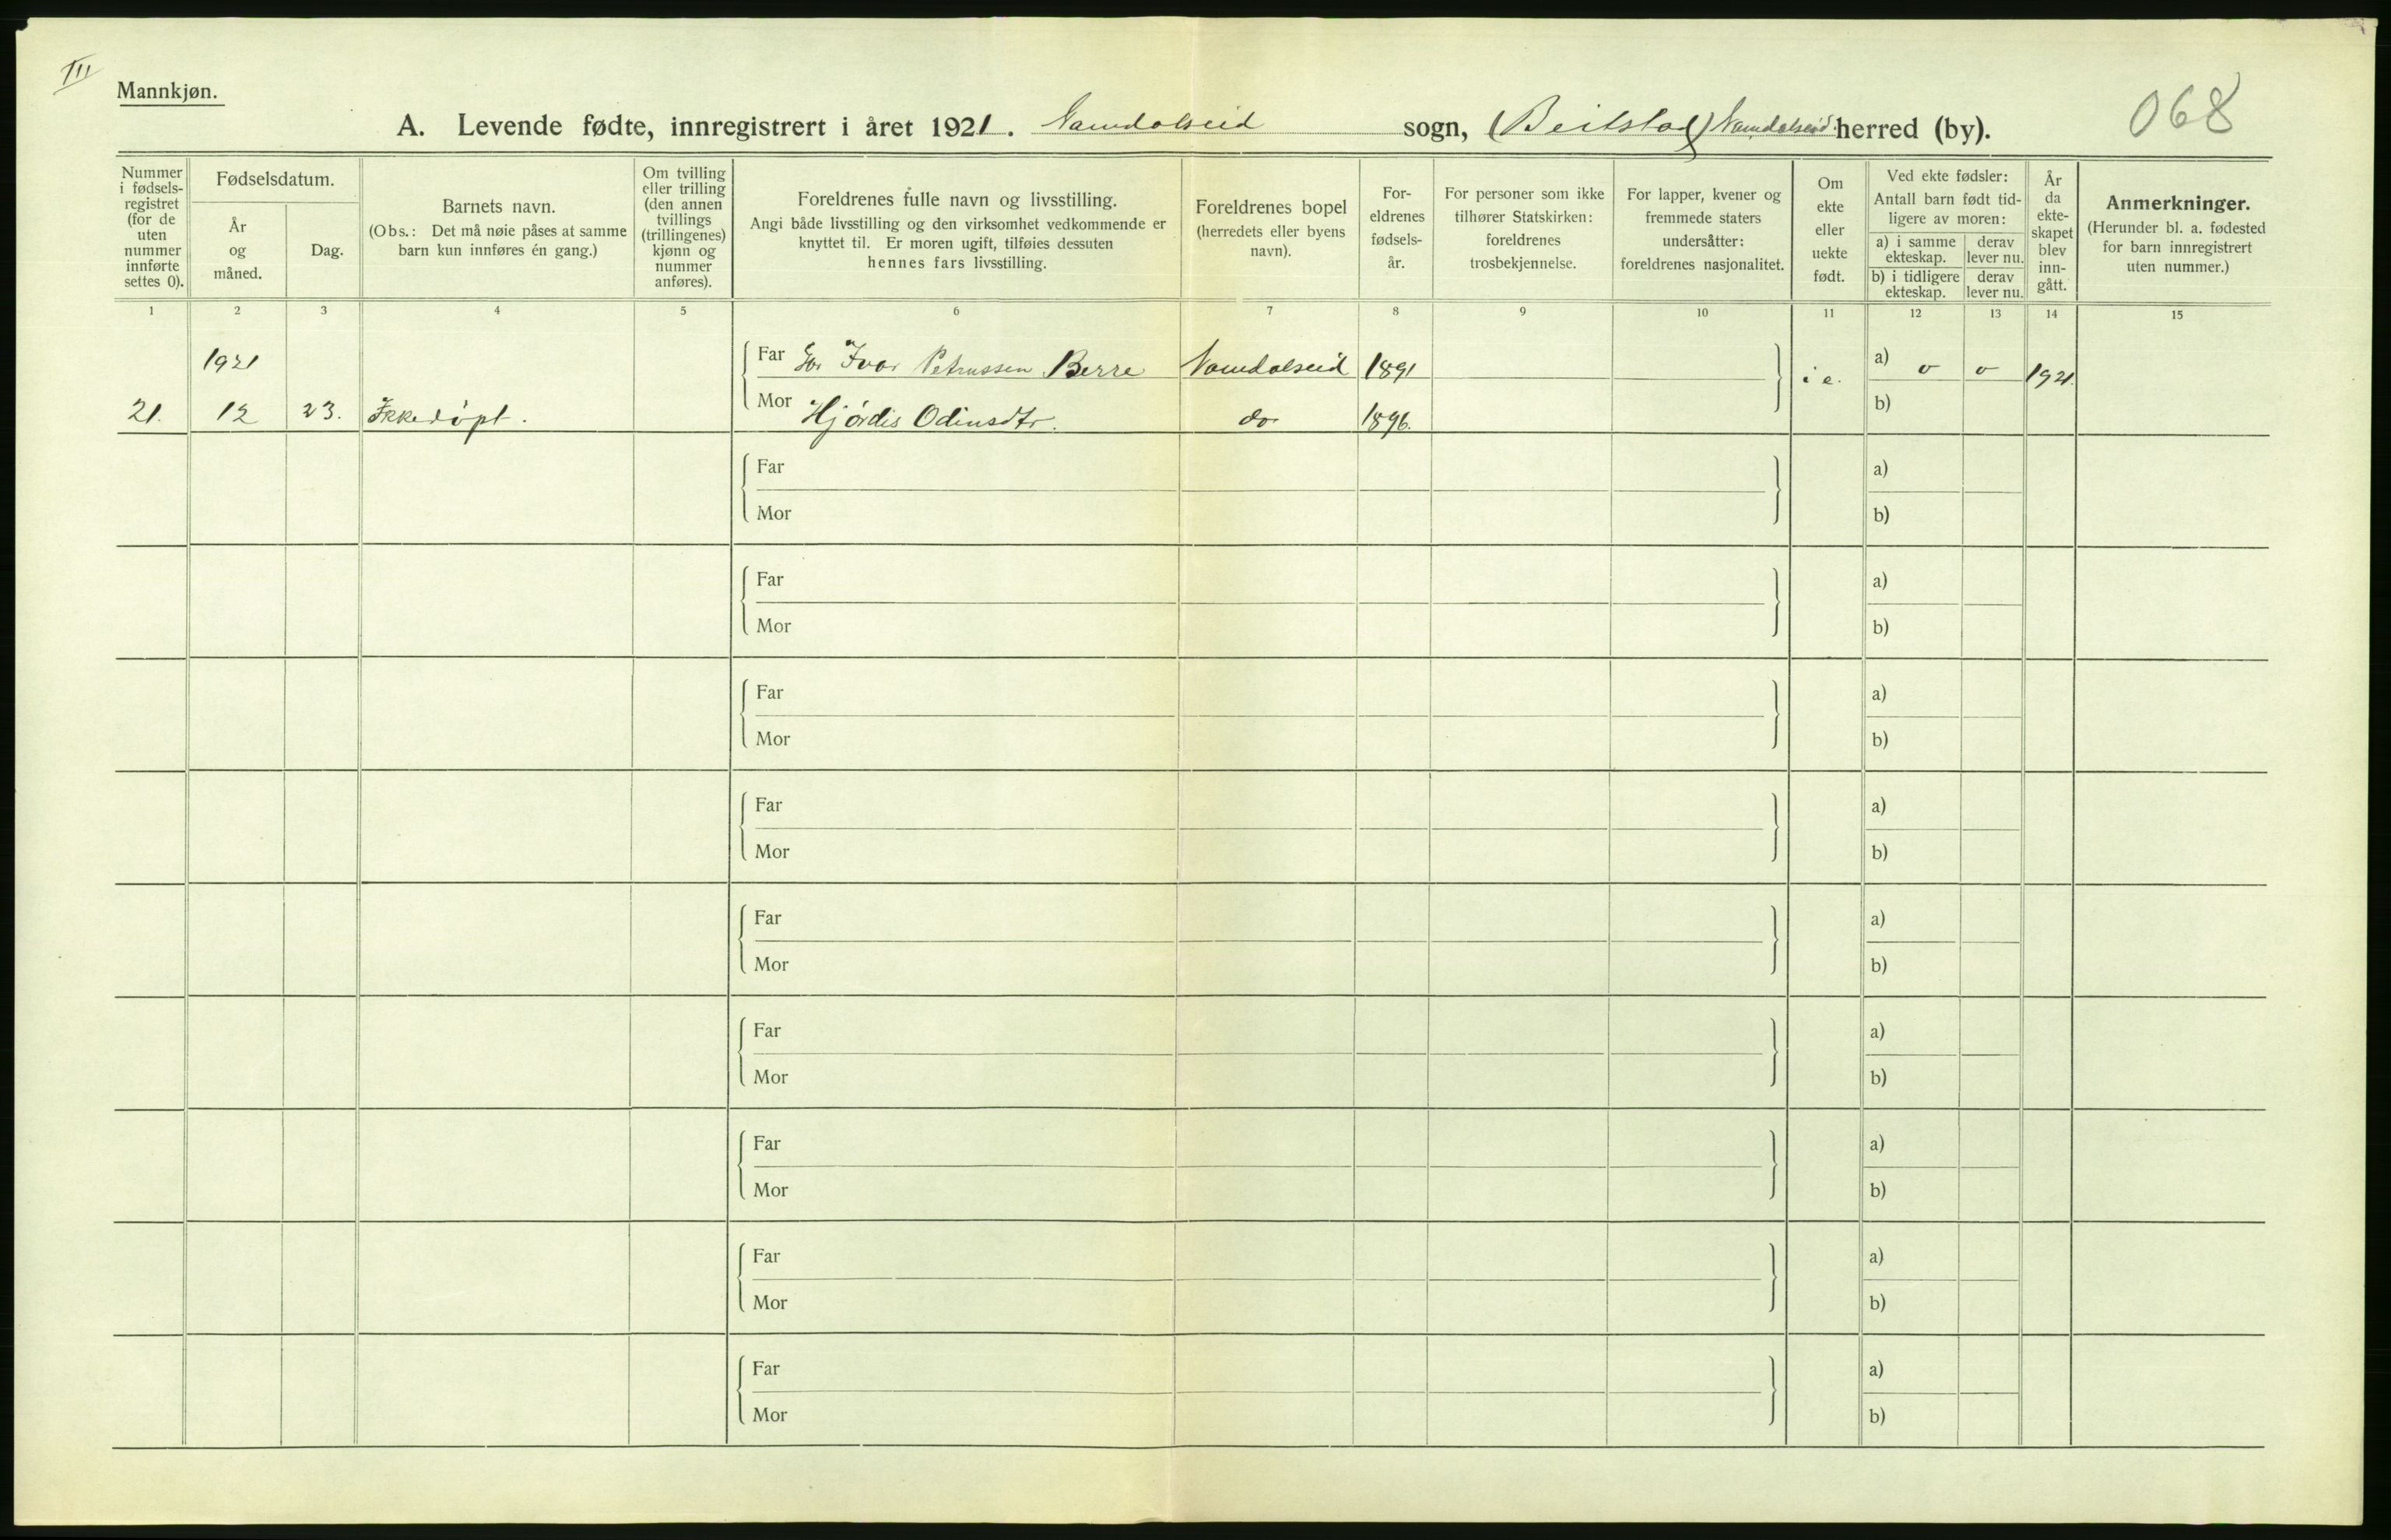 III
Mannkjøn.
A. Levende fødte, innregistrert i året 1921. Namdalseid sogn, (Beitstad) Namdalseid herred (by).
068
Nummer i fødsels-registret (for de uten nummer innførte settes 0).
Fødselsdatum.
År og måned.
Dag.
Barnets navn.
(Obs.: Det må nøie påses at samme barn kun innføres én gang.)
Om tvilling eller trilling (den annen tvillings (trillingenes) kjønn og nummer anføres).
Foreldrenes fulle navn og livsstilling.
Angi både livsstilling og den virksomhet vedkommende er knyttet til. Er moren ugift, tilføies dessuten hennes fars livsstilling.
Foreldrenes bopel (herredets eller byens navn).
For-eldrenes fødsels-år.
For personer som ikke tilhører Statskirken: foreldrenes trosbekjennelse.
For lapper, kvener og fremmede staters undersåtter: foreldrenes nasjonalitet.
Om ekte eller uekte født.
Ved ekte fødsler:
Antall barn født tid-ligere av moren:
a) i samme ekteskap.
derav lever nu.
b) i tidligere ekteskap.
derav lever nu.
År da ekte-skapet blev inn-gått.
Anmerkninger.
(Herunder bl. a. fødested for barn innregistrert uten nummer.)
1 2 3 4 5 6 7 8 9 10 11 12 13 14 15
1921 Far Ivar Petrussen Berre Namdalseid 1891 i e. a) 0 0 1921.
21. 12 23. Ikke døpt. Mor Hjørdis Odinsdtr. do 1896. b)
Far a)
Mor b)
Far a)
Mor b)
Far a)
Mor b)
Far a)
Mor b)
Far a)
Mor b)
Far a)
Mor b)
Far a)
Mor b)
Far a)
Mor b)
Far a)
Mor b)